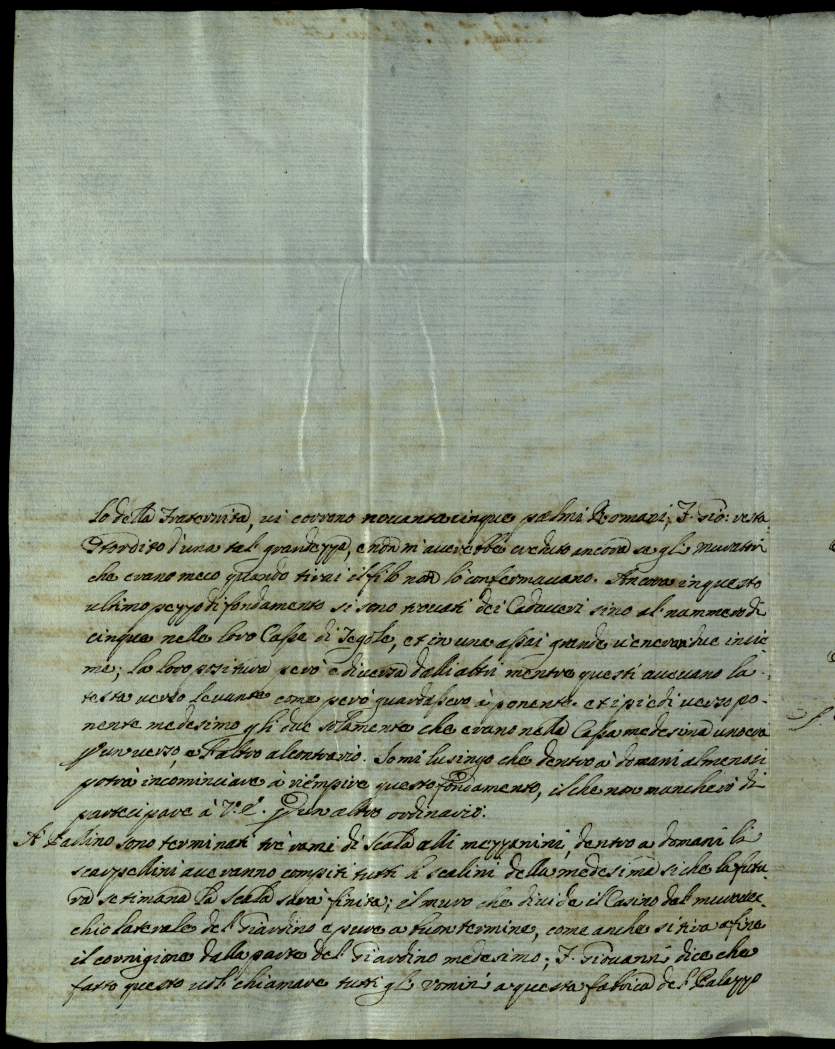 lo della Fraternità, vi corrono novanta cinque palmi Romani; F. Gio: resta
stordito d'una tal grandezza, e non mi averebbe creduto ancora se gli muratori
che erano meco quando tirai il filo non lo confermavano. Ancora in questo
ultimo pezzo di fondamento si sono trovati dei Cadaveri sino al nummero di
cinque nelle loro Casse di Tegole, et in una assai grande v'enerano due insie
me; la loro positura però è diversa dalli altri mentre questi avevano la
testa verso levante come però guardassero à ponente, et i piedi verso po-
nente medesimo gli due solamente che erano nella Cassa medesima uno era
p un verso, e l'altro al contrario. Io mi lusingo che dentro à domani almeno si
potrà incominciare à riempire questo fondamento, il che non mancherò di
partecipare à V: E. p un altro ordinario.
A Paolino sono terminati trè rami di Scala alli mezzanini, dentro a domani li
scarpellini averanno compiti tutti li scalini della medesima si che la futu
ra settimana la Scala sarà finita; il muro che divide il Casino dal muro vec-
chio laterale del Giardino è pure a buon termine, come anche si tira a fine
il cornigione dalla parte del Giardino medesimo; F. Giovanni dice che
fatto questo vol chiamare tutti gli Uomini a questa fabrica del Palazzo